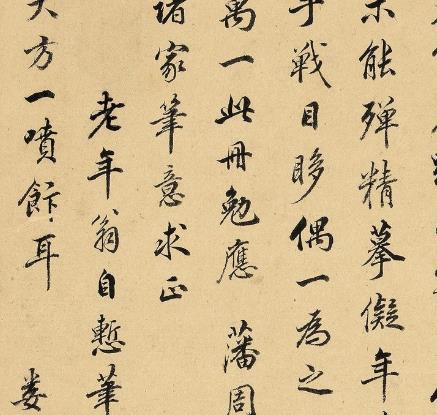 能殫精摹儗年
手戦目眵偶一為之
萬一此冊勉應 藩周
諸家筆意求正
老年翁自慙筆
大方一噴飰耳 婁